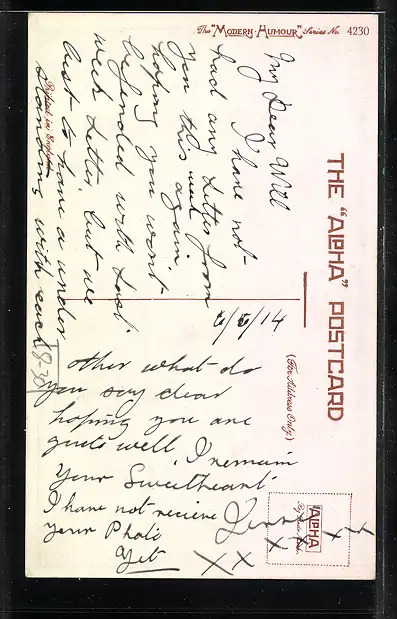 The "MODERN HUMOUR" Series No. 4230
THE "ALPHA" POSTCARD
(For Address Only)
Printed in England
ALPHA
My Dear Will
I have not
had any letter from
you this week again
hoping you won't
be fended with last
week letter but we
bust to have a under
standing with each
6/6/14
other what do
you say dear
hoping you are
quete well, I remain
Your Sweetheart
Jenny
I have not recieve
your Photo
Yet
X X X X X X